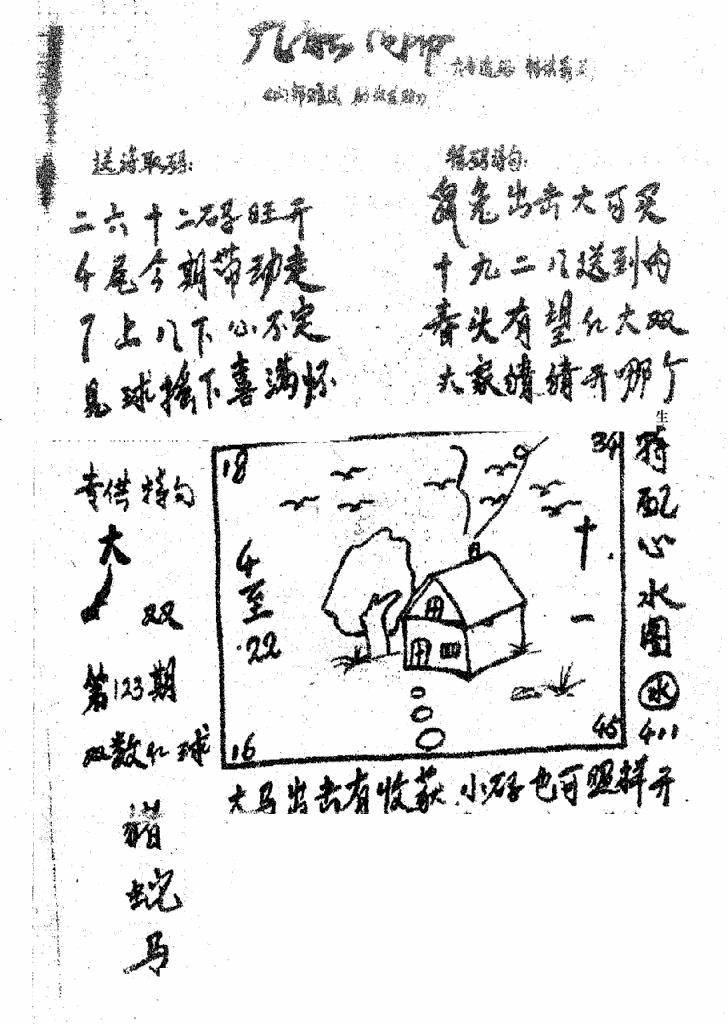 送诗取码:
二六十二码旺开
4尾今期带动走
7上八下心不定
见球摇下喜满怀
特码诗句:
兔出击大可买
十九二八送到内
春头有望红大双
大家猜猜开哪个
专供特句
大
双
第123期
双数红球
猪
蛇
马
18
34
4至22
十一
16
45
生
特配心水图
水
411
大马出击有收获 小码也可照样开